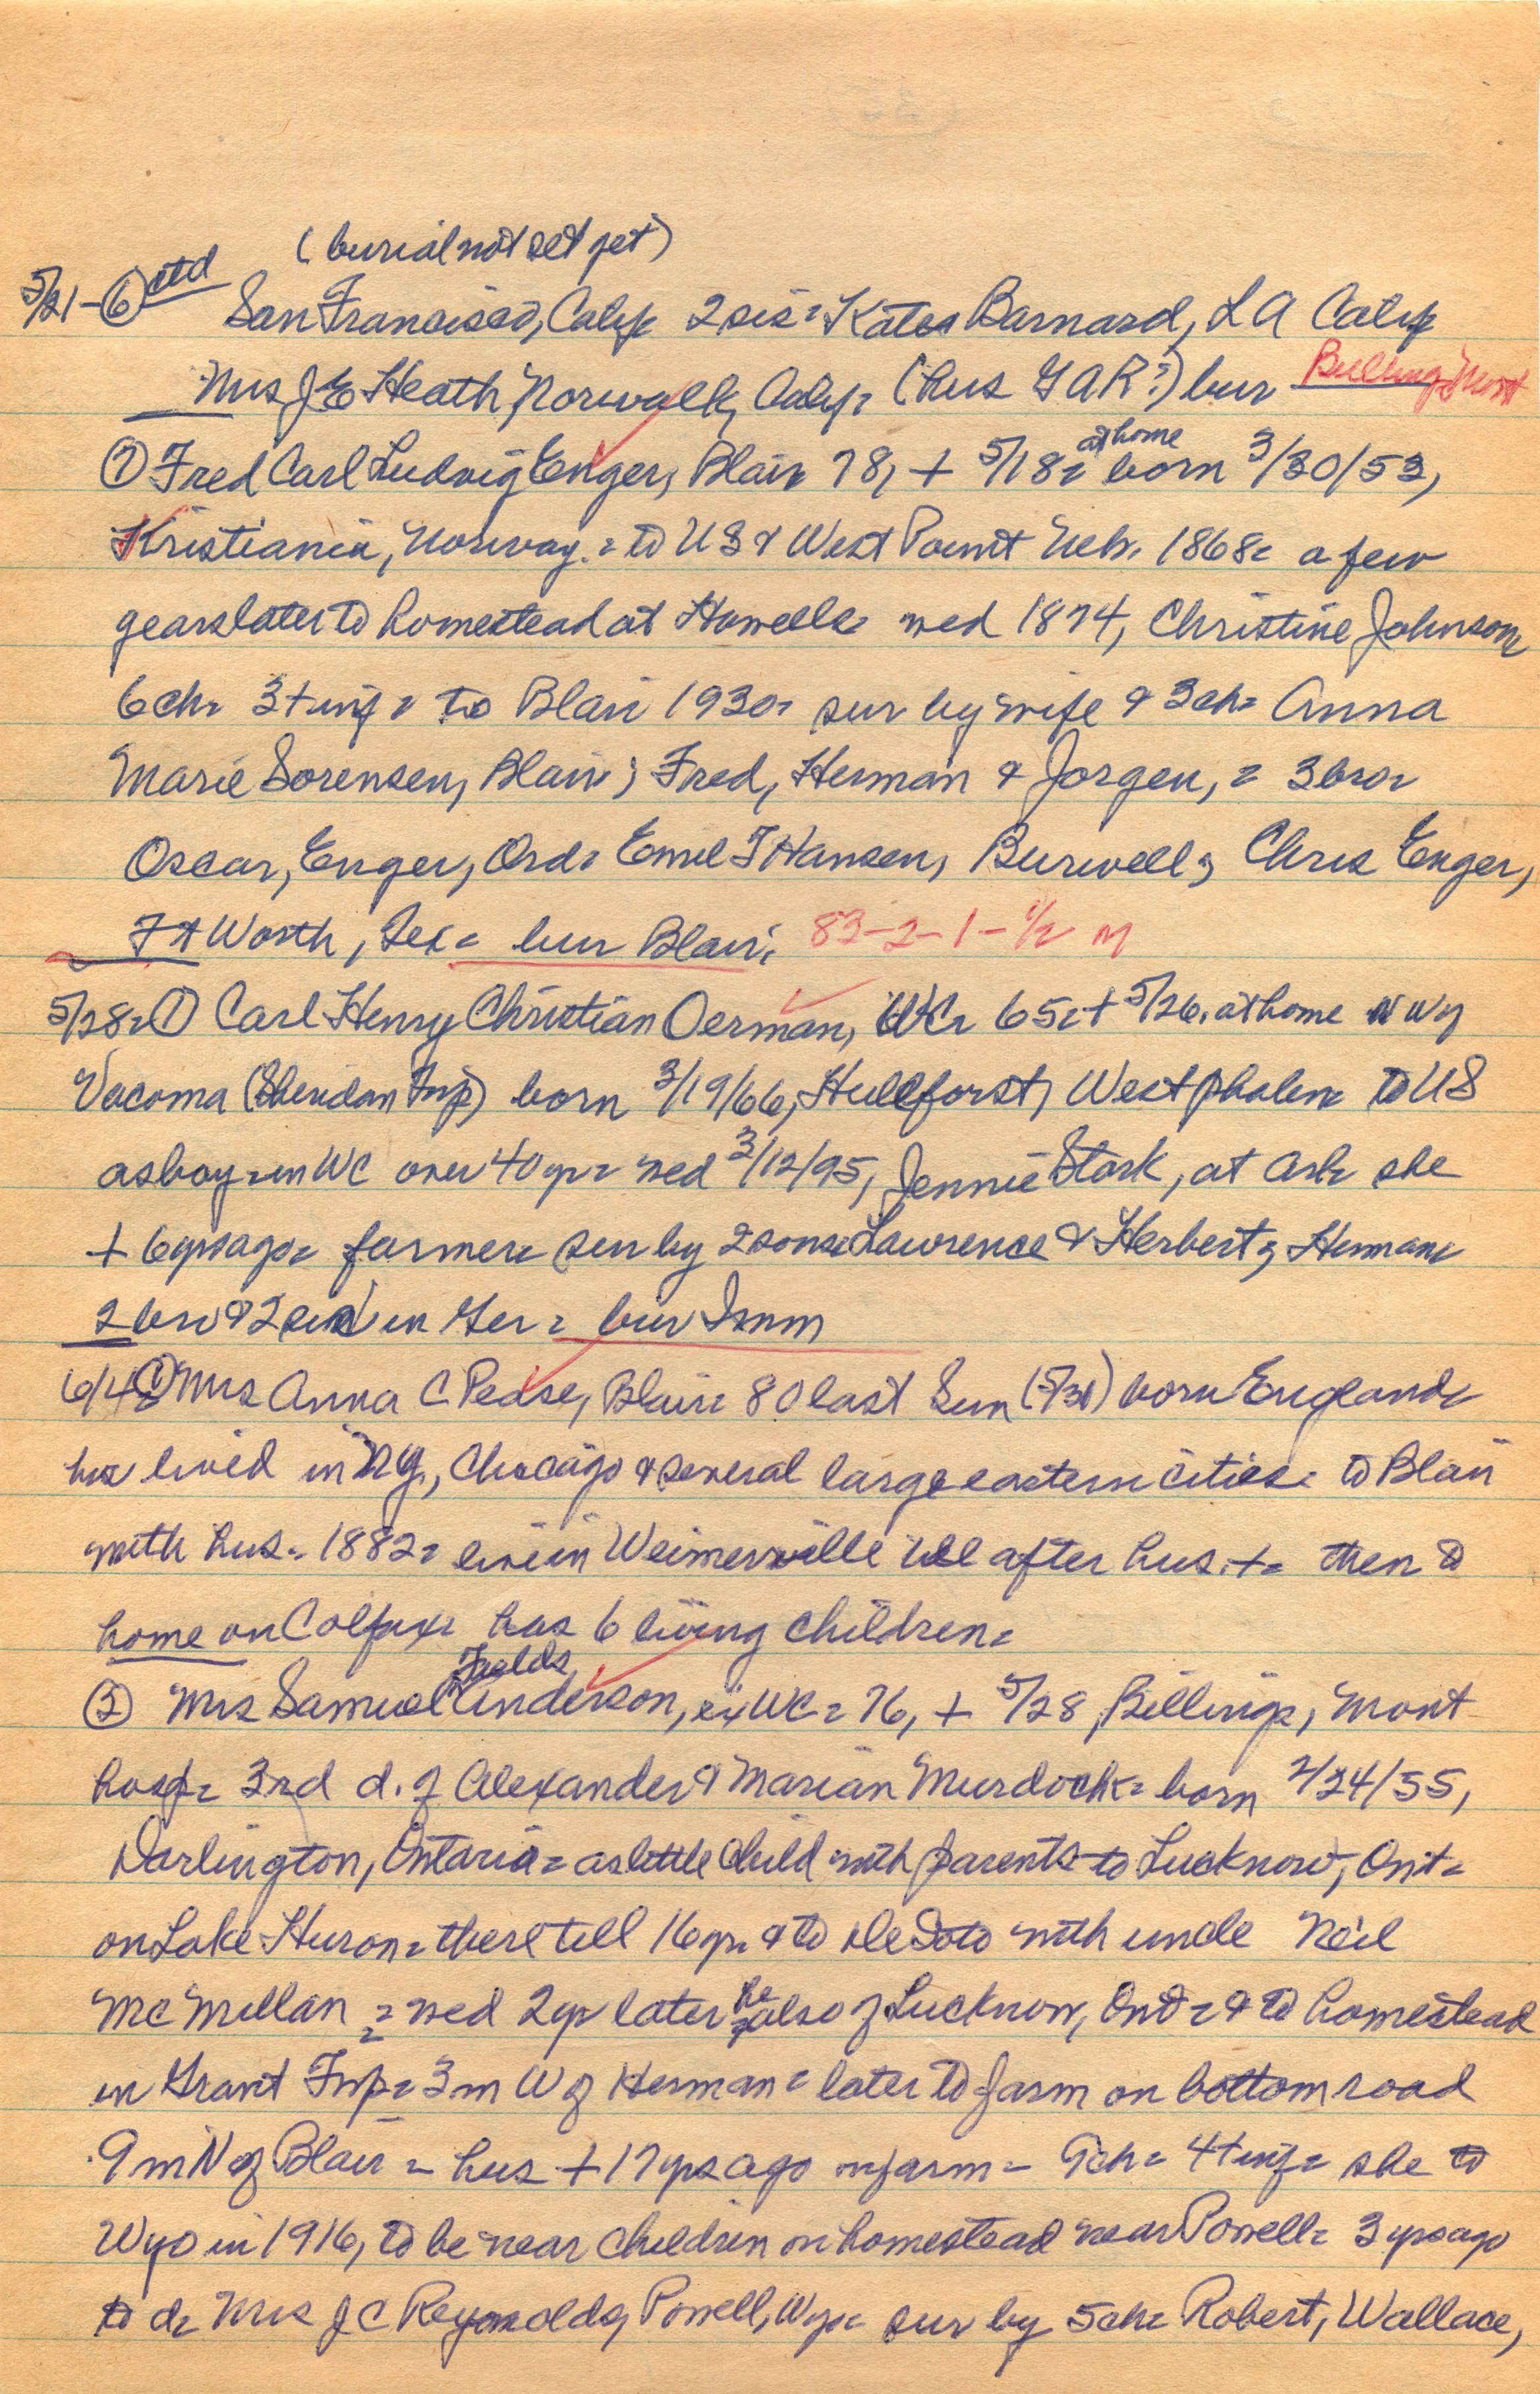 (burial not set yet)
5/21-⑥ ctd San Francisco, Calif 2 sis = Kates Barnard, LA Calif
Mrs J E Heath, Norwalk, Calif = (hus GAR?) bur Billings Mont
⑦ Fred Carl Ludvig Enger, Blair 78, + 5/18 = at home born 3/30/53,
Kristiania, Norway. = to US & West Point Neb. 1868 = a few
years later to homestead at Howells = wed 1874, Christine Johnson
6 ch = 3 + inf = to Blair 1930 = sur by wife & 3 ch = Anna
Marie Sorensen, Blair; Fred, Herman & Jorgen, = 3 bro =
Oscar, Enger, Ord = Emil T Hansen, Burwell; Chris Enger,
Ft Worth, Tex = bur Blair. 83-2-1-1/2 M
5/28 = ① Carl Henry Christian Oerman, WC = 65 = + 5/26. at home nr
Vacoma (Sheridan Twp) born 3/19/66, Hullforst, Westphalen = to US
as boy = in WC over 40 yr = wed 3/12/95, Jennie Stork, at Ark she
+ 6 yrs ago = farmer = sur by 2 sons = Lawrence & Herbert, Herman =
2 bro & 2 sis in Ger = bur Imm
6/4 = ① Mrs Anna C Pease, Blair = 80 last Sun (5/31) born England =
has lived in NY., Chicago & several large eastern cities = to Blair
with hus. 1882 = live in Weimerville till after hus. + = then to
home on Colfax = has 6 living children =
③ Mrs Samuel Fields Anderson, ex WC = 76, + 5/28, Billings, Mont
hosp = 3rd d. of Alexander & Marian Murdock = born 2/24/55,
Darlington, Ontario = as little child with parents to Lucknow, Ont =
on Lake Huron = there till 16 yr & to De Soto with uncle Neil
McMillan = wed 2 yr later he also of Lucknow, Ont = & to homestead
in Grant Twp = 3 m W of Herman = later to farm on bottom road
9 m N of Blair = hus + 17 yrs ago on farm = 9 ch = 4 + inf = she to
Wyo in 1916, to be near children on homestead near Powell = 3 yrs ago
to d = Mrs J C Reynolds, Powell, Wyo = sur by 5 ch = Robert, Wallace,